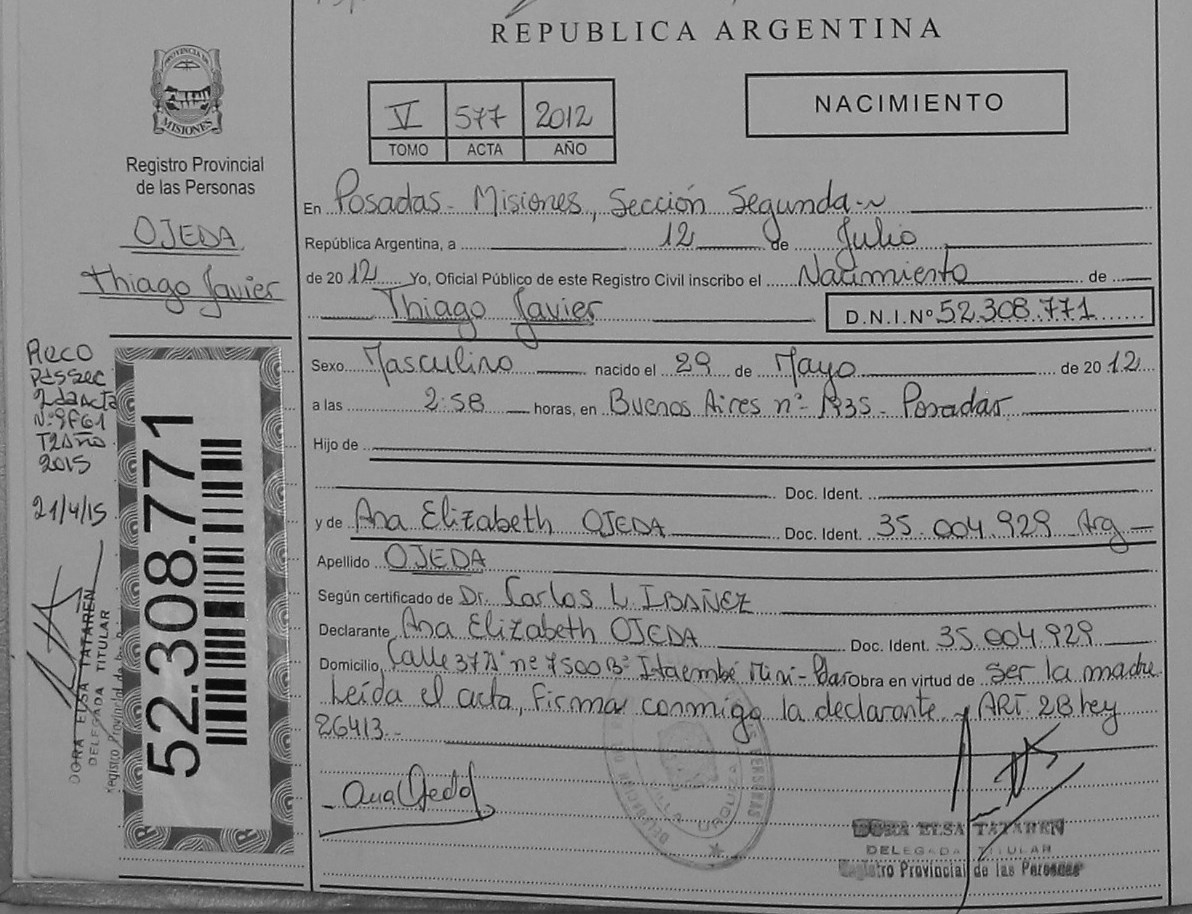 REPUBLICA ARGENTINA
PROVINCIA DE
MISIONES
Registro Provincial
de las Personas
OJEDA
Thiago Javier
V 577 2012
TOMO ACTA AÑO
NACIMIENTO
En Posadas - Misiones, Sección Segunda
República Argentina, a 12 de Julio
de 2012 Yo, Oficial Público de este Registro Civil inscribo el Nacimiento de
Thiago Javier D.N.I.Nº 52.308.771
Sexo Masculino nacido el 29 de Mayo de 2012
a las 2:58 horas, en Buenos Aires nº 1935 - Posadas
Hijo de
Doc. Ident.
y de Ana Elizabeth OJEDA Doc. Ident. 35.004.929 Arg
Apellido OJEDA
Según certificado de Dr. Carlos L. IBAÑEZ
Declarante Ana Elizabeth OJEDA Doc. Ident. 35.004.929
Domicilio Calle 37 nº 7500 Bº Itaembé Mini - Obra en virtud de ser la madre
Leída el acta, Firma conmigo la declarante y ART 28 Ley
26413.-
Ana Ojeda
DORA ELSA TATAREN
DELEGADA TITULAR
Registro Provincial de las Personas
Reco
2015
21/4/15
DORA ELSA TATAREN
DELEGADA TITULAR
Registro Provincial de
52.308.771